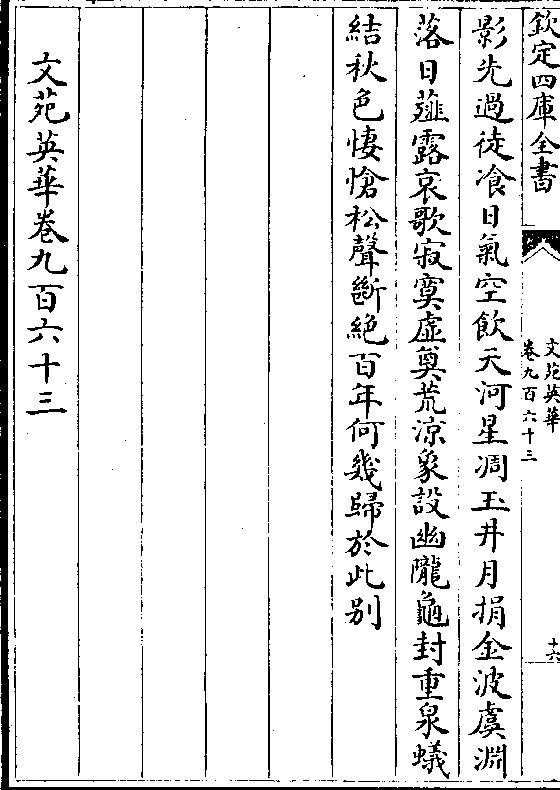 欽定四庫全書
文苑英華
卷九百六十三
十六
影先過徒飡日氣空飲天河星凋玉井月捐金波虞淵
落日薤露哀歌寂寞虛奠荒涼象設幽隴龜封重泉蟻
結秋色悽愴松聲斷絕百年何幾歸於此别
文苑英華卷九百六十三